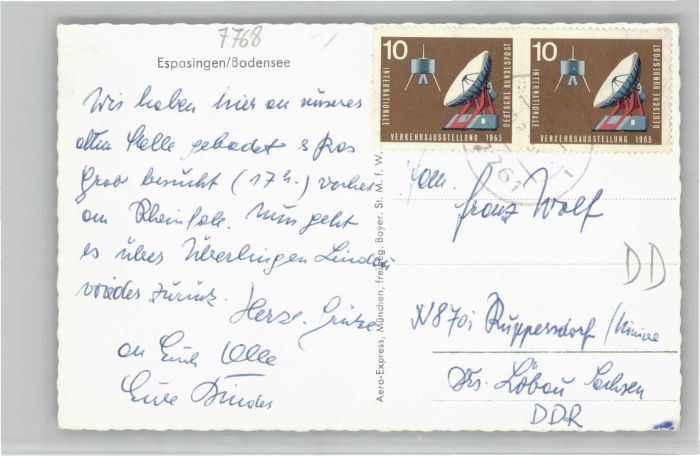 7768
Espasingen/Bodensee
Wir haben hier an unserer
alten Stelle gebadet &
Grab besucht (17 h.) vorher
am Rheinfall. Nun geht
es über Überlingen Lindau
wieder zurück.
Herzl. Grüße
an Euch Alle
Eure Kinder
10
INTERNATIONALE
VERKEHRSAUSSTELLUNG 1965
DEUTSCHE BUNDESPOST
10
INTERNATIONALE
VERKEHRSAUSSTELLUNG 1965
DEUTSCHE BUNDESPOST
Aero-Express, München, freigeg. Bayer. St. M. f. W.
Fam.
Franz Wolf
DD
Ruppersdorf
Krs. Löbau Sachsen
DDR